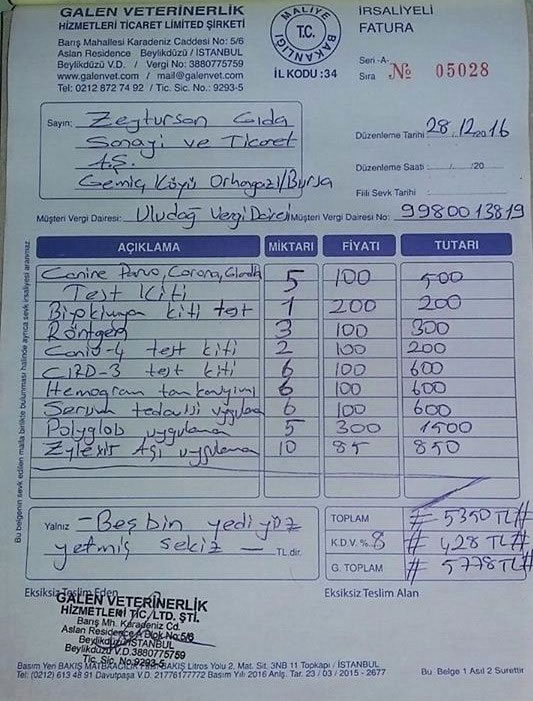 GALEN VETERİNERLİK
HİZMETLERİ TİCARET LİMİTED ŞİRKETİ
Barış Mahallesi Karadeniz Caddesi No: 5/6
Aslan Residence Beylikdüzü / İSTANBUL
Beylikdüzü V.D. / Vergi No: 3880775759
www.galenvet.com / mail@galenvet.com
Tel: 0212 872 74 92 / Tic. Sic. No.: 9293-5
MALİYE BAKANLIĞI
T.C.
İL KODU :34
İRSALİYELİ
FATURA
Seri -A-
Sıra № 05028
Sayın; Zeytursan Gıda
Sanayi ve Ticaret
A.Ş.
Gemiç Köyü Orhagazi/Bursa
Düzenleme Tarihi 28.12.2016
Düzenleme Saati : / /20
Fiili Sevk Tarihi
Müşteri Vergi Dairesi: Uludağ Vergi Dairei Müşteri Vergi Dairesi No: 9980013819
AÇIKLAMA MİKTARI FİYATI TUTARI
Canine Parvo, Corona, Giardia 5 100 500
Test Kiti
Biyokimya kiti test 1 200 200
Röntgen 3 100 300
Canid-4 test kiti 2 100 200
CIRD-3 test kiti 6 100 600
Hemogram tam kan sayımı 6 100 600
Serum tedavisi uygulama 6 100 600
Polyglob uygulama 5 300 1500
Zylexis Aşı uygulama 10 85 850
Bu belgenin sevk edilen malla birlikte bulunması halinde ayrıca sevk irsaliyesi aranmaz.
Yalnız - Beş bin yedi yüz
yetmiş sekiz — TL dir.
TOPLAM # 5350 TL #
K.D.V. % 8 # 428 TL #
G. TOPLAM # 5778 TL #
Eksiksiz Teslim Eden
Eksiksiz Teslim Alan
GALEN VETERİNERLİK
HİZMETLERİ TİC. LTD. ŞTİ.
Barış Mh. Karadeniz Cd.
Aslan Residence A Blok No:5/6
Beylikdüzü/İSTANBUL
Beylikdüzü V.D.3880775759
Tic. Sic. No:9293-5
Basım Yeri BAKIŞ MATBAACILIK BAKIŞ Litros Yolu 2. Mat. Sit. 3NB 11 Topkapı / İSTANBUL
Tel: (0212) 613 48 91 Davutpaşa V.D. 21776177772 Basım Yılı 2016 Anlş. Tar. 23 / 03 / 2015 - 2677
Bu Belge 1 Asıl 2 Surettir